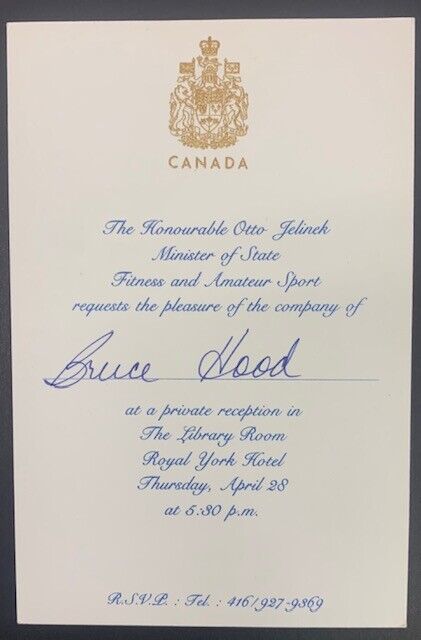 CANADA
The Honourable Otto Jelinek
Minister of State
Fitness and Amateur Sport
requests the pleasure of the company of
Bruce Hood
at a private reception in
The Library Room
Royal York Hotel
Thursday, April 28
at 5:30 p.m.
R.S.V.P. : Tel. : 416/927-9369